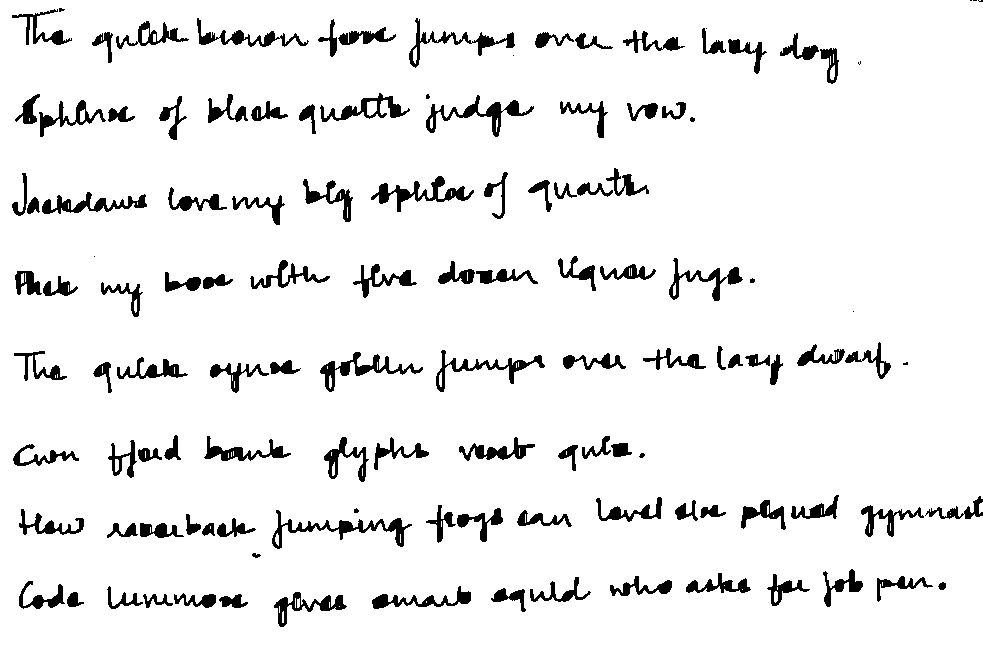 The quick brown fox jumps over the lazy dog.
Sphinx of black quartz judge my vow.
Jackdaws love my big sphinx of quartz
Pack my box with five dozen liquor jugs.
The quick onyx goblin jumps over the lazy dwarf.
Cwm fjord bank glyphs vext quiz.
How razorback jumping frogs can level six piqued gymnast
Code luminose gives smart squid who asks for job pen.